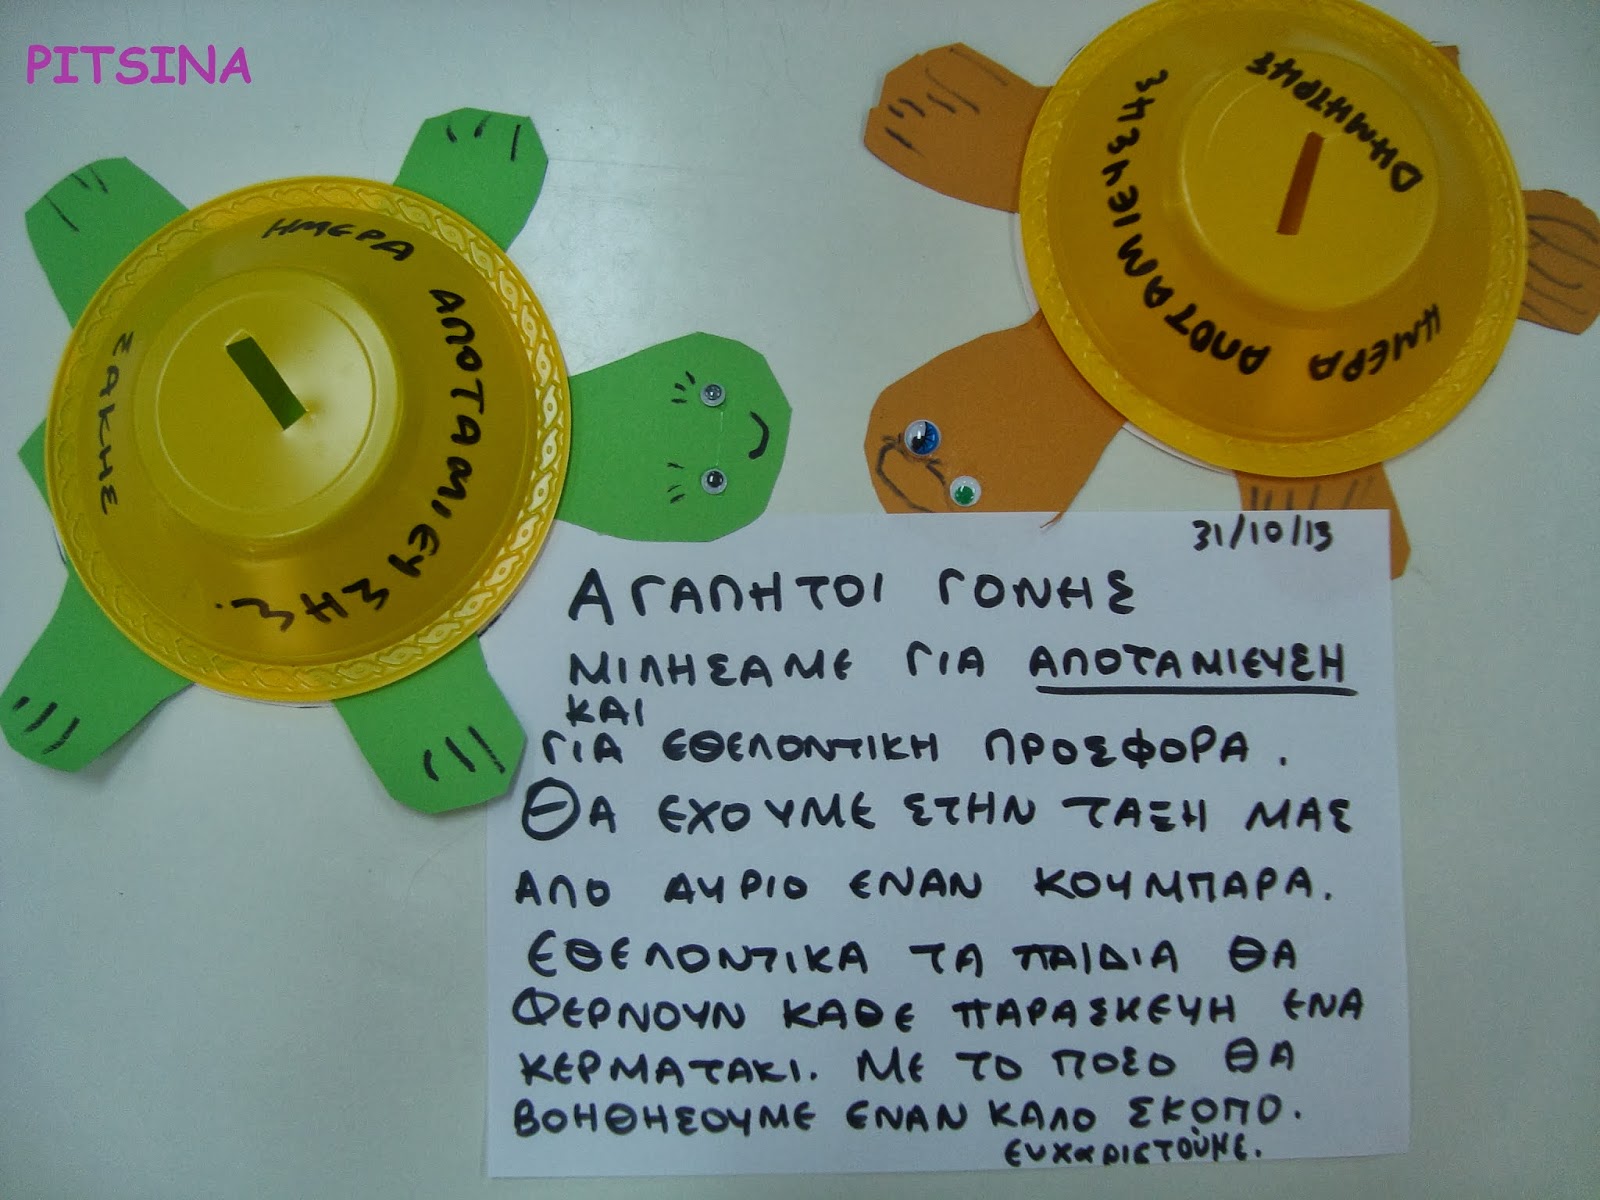 PITSINA
ΗΜΕΡΑ ΑΠΟΤΑΜΙΕΥΣΗΣ.
ΣΑΚΗΣ
ΔΗΜΗΤΡΗΣ
ΗΜΕΡΑ ΑΠΟΤΑΜΙΕΥΣΗΣ
31/10/13
ΑΓΑΠΗΤΟΙ ΓΟΝΗΣ
ΜΙΛΗΣΑΜΕ ΓΙΑ ΑΠΟΤΑΜΙΕΥΣΗ
ΚΑΙ
ΓΙΑ ΕΘΕΛΟΝΤΙΚΗ ΠΡΟΣΦΟΡΑ.
ΘΑ ΕΧΟΥΜΕ ΣΤΗΝ ΤΑΞΗ ΜΑΣ
ΑΠΟ ΑΥΡΙΟ ΕΝΑΝ ΚΟΥΜΠΑΡΑ.
ΕΘΕΛΟΝΤΙΚΑ ΤΑ ΠΑΙΔΙΑ ΘΑ
ΦΕΡΝΟΥΝ ΚΑΘΕ ΠΑΡΑΣΚΕΥΗ ΕΝΑ
ΚΕΡΜΑΤΑΚΙ. ΜΕ ΤΟ ΠΟΣΟ ΘΑ
ΒΟΗΘΗΣΟΥΜΕ ΕΝΑΝ ΚΑΛΟ ΣΚΟΠΟ.
ΕΥΧΑΡΙΣΤΟΥΜΕ.